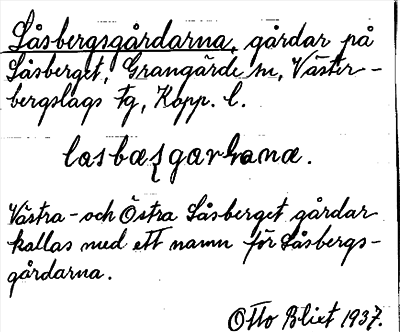 Låsbergsgårdarna, gårdar på
Låsberget, Grangärde sn, Väster-
bergslags Fg, Kopp. l.
Västra- och Östra Låsberget gårdar
kallas med ett namn för Låsbergs-
gårdarna.
Otto Blixt 1937.